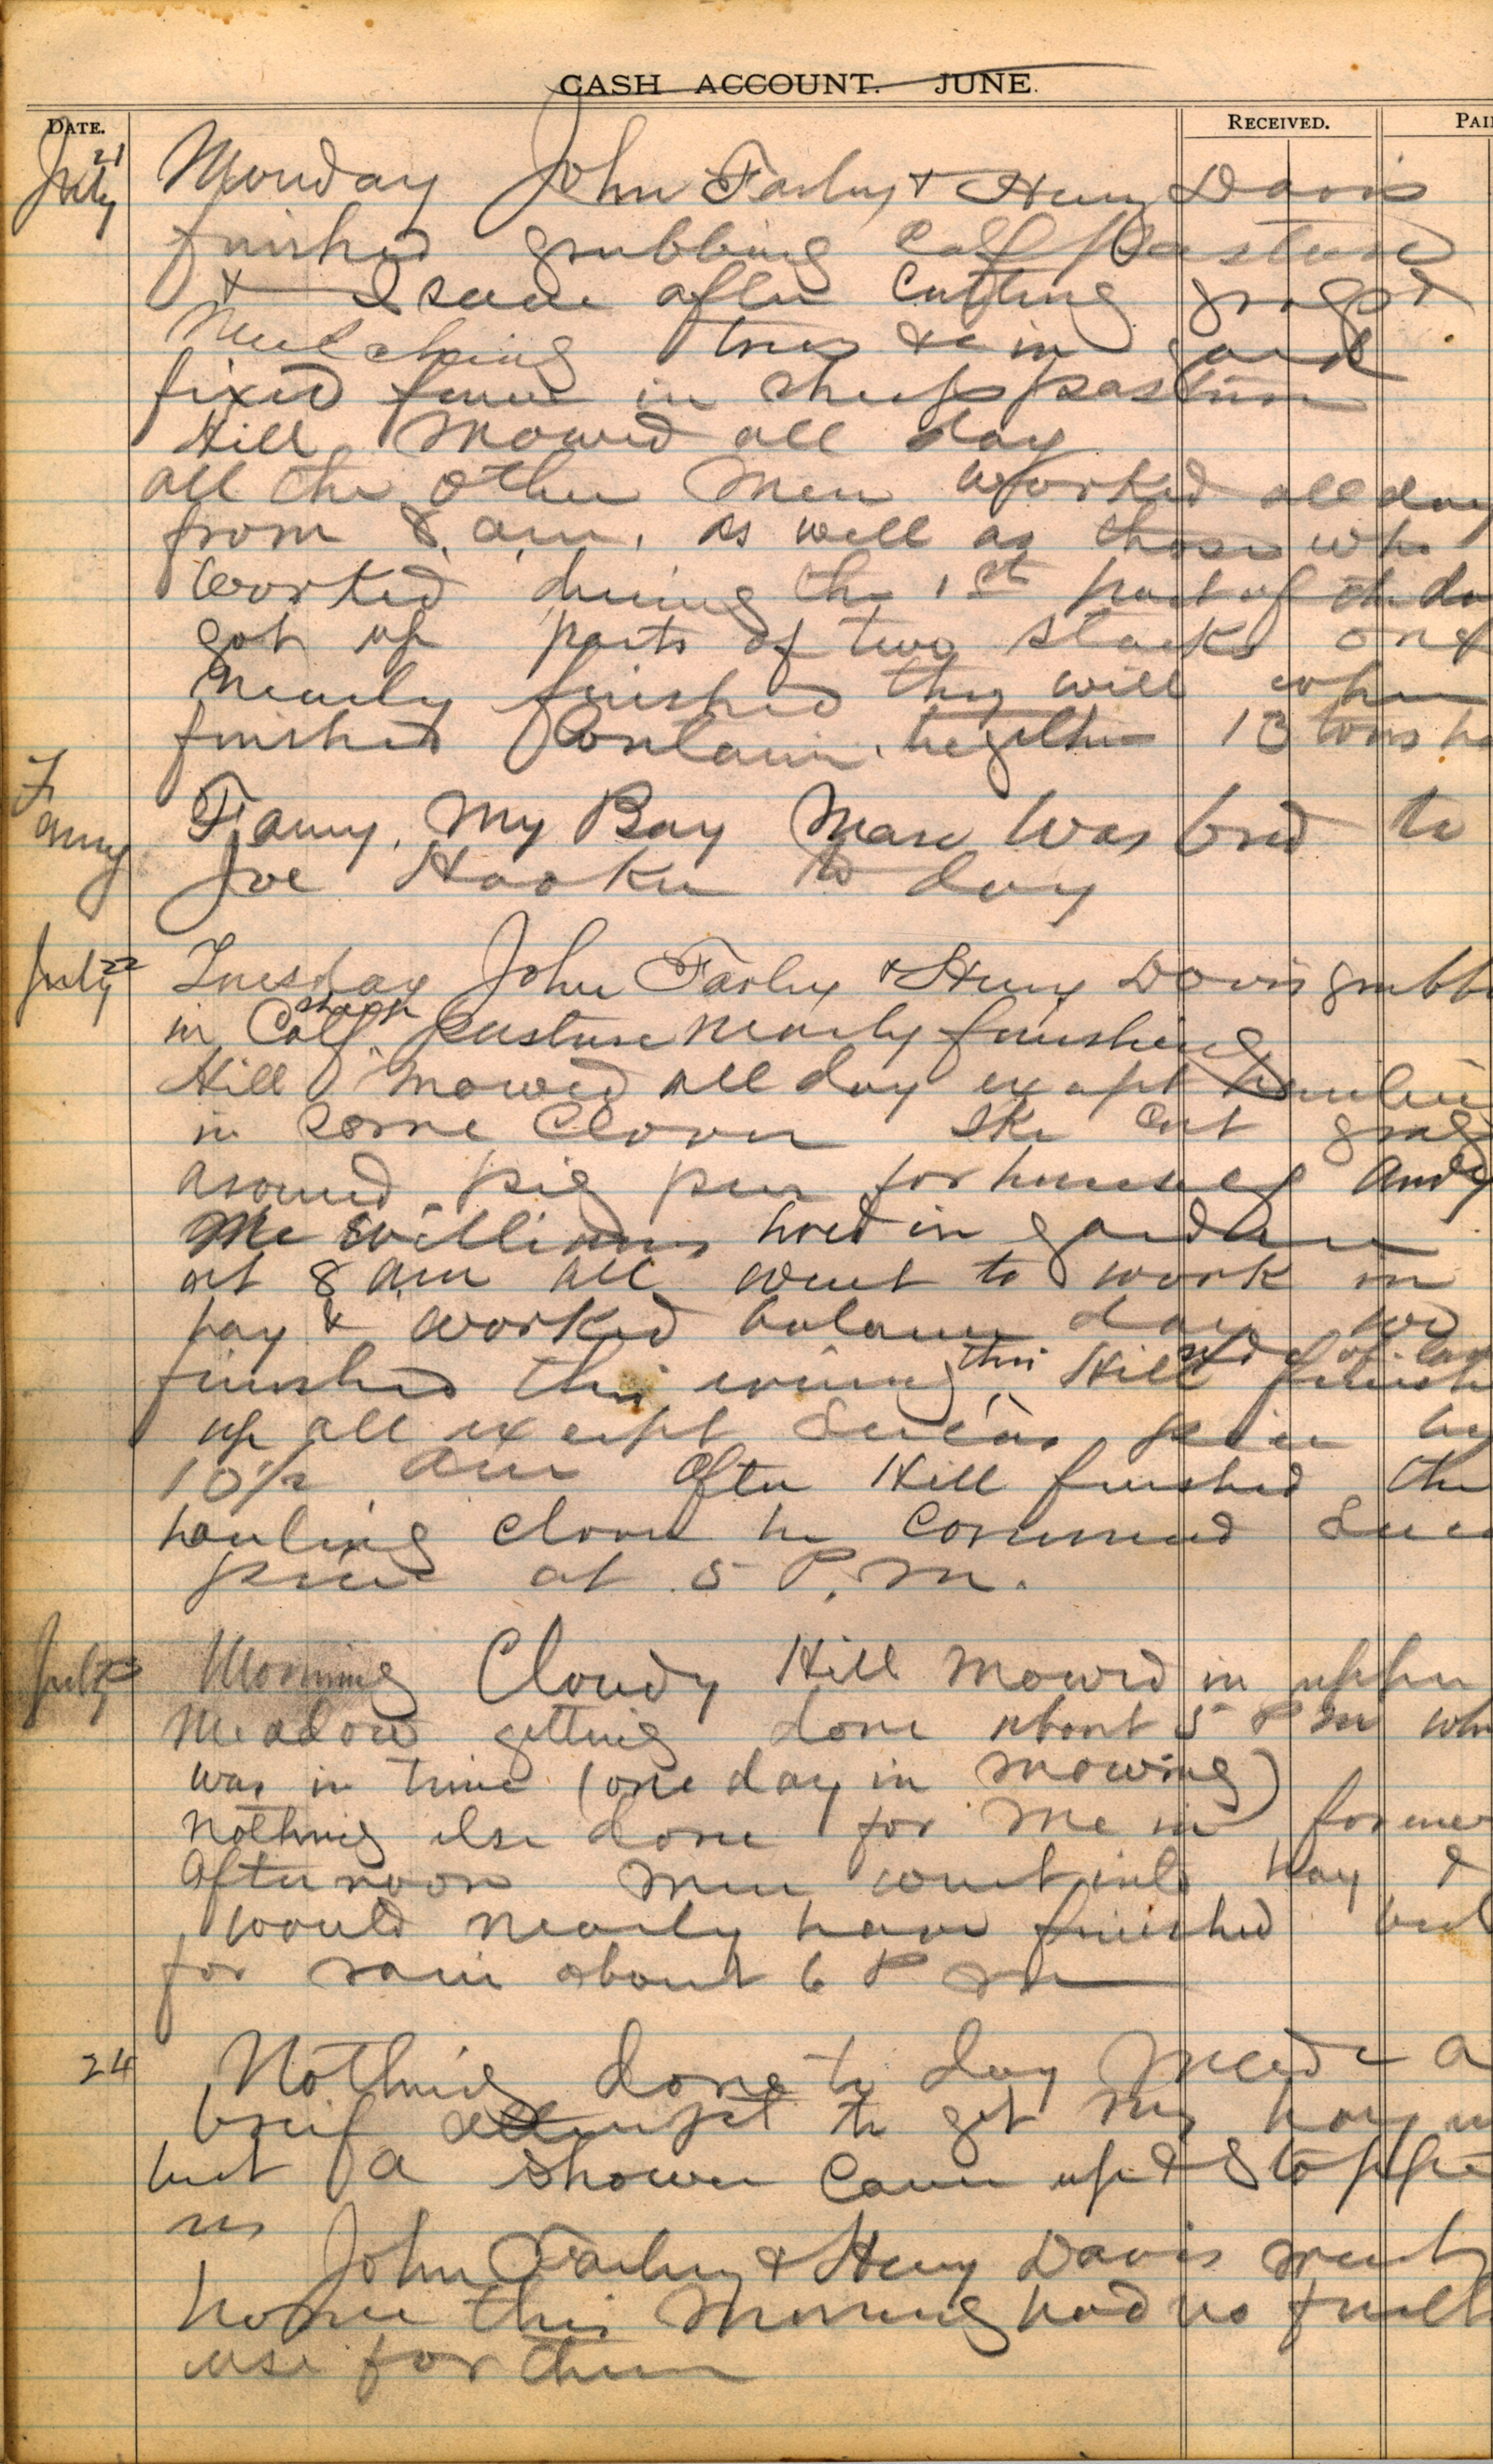 CASH ACCOUNT. JUNE.
DATE. RECEIVED. PAI
July 21 Monday John Farley & Henry Davis
finished grubbing Calf Pasture
& I save after Cutting grass &
Mulching trees &c in yard
fixed fence in sheep pasture
Hill Mowed all day
all the other Men worked all day
from 8. a.m. as well as those who
worked during the 1st part of the da
got up parts of two stacks one
nearly finished they will when
finished Contain together 13 tons ha
Fanny Fanny, My Bay Mare was bred to
Joe Hooker to day
July 22 Tuesday John Farley & Henry Davis grubb
in Calf sheep pasture nearly finishing
Hill mowed all day except haulin
in some Clover Ike Cut grass
around pig pen for himself Andy
McWilliams hoed in garden
at 8 am all went to work in
hay & worked balance day we
finished this evening this side of
Hill finish
up all except by
10½ am After Hill finished the
hauling clover he Commenced
at 5 P.M.
July 23 Morning Cloudy Hill mowed in upper
Meadow getting done about 5 P M wh
was in time (one day in mowing)
Nothing else done for me in forenoo
Afternoon men went into hay &
would nearly have finished but
for rain about 6 P M
24 Nothing done to day Made a
breif attempt to get my hay u
but a shower Came up & Stoppe
us
John Farley & Henry Davis went
home this Morning had no furth
use for them